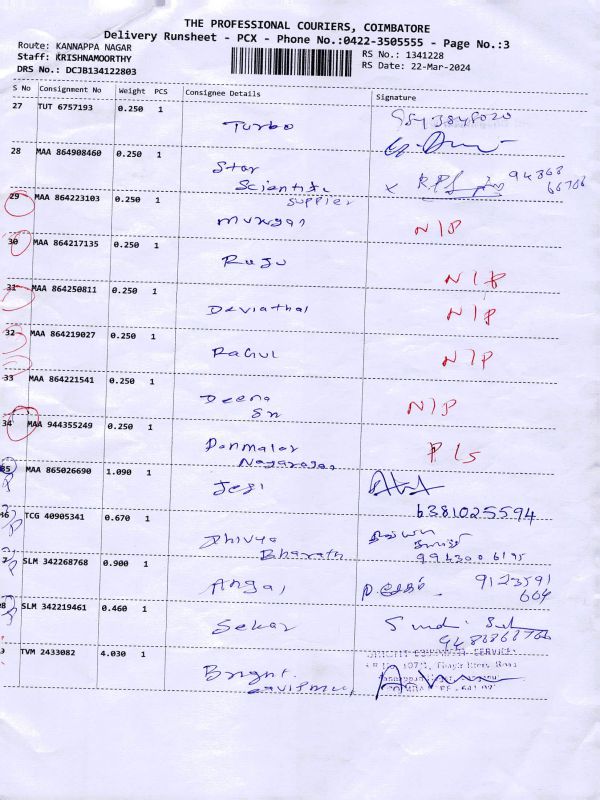 THE PROFESSIONAL COURIERS, COIMBATORE
Delivery Runsheet - PCX - Phone No.:0422-3505555 - Page No.:3
Route: KANNAPPA NAGAR
RS No.: 1341228
Staff: KRISHNAMOORTHY
RS Date: 22-Mar-2024
DRS No.: DCJB134122803
S No Consignment No Weight PCS Consignee Details Signature
27 TUT 6757193 0.250 1
Turbo
28 MAA 864908460 0.250 1
Star
Scientific
Supplier
29 MAA 864223103 0.250 1
Murugan N/P
30 MAA 864217135 0.250 1
Raju N/P
31 MAA 864250811 0.250 1
Deviathal N/P
32 MAA 864219027 0.250 1
Rahul N/P
33 MAA 864221541 0.250 1
Deena
Sn N/P
34 MAA 944355249 0.250 1
Ponmalar
Nagarajan P/s
35 MAA 865026690 1.090 1
Jegi
6381025594
36 TCG 40905341 0.670 1
Dhivya
Bharath 994300 6195
37 SLM 342268768 0.900 1
Angal 9123591
664
38 SLM 342219461 0.460 1
Sekar
TVM 2433082 4.030 1
Bright